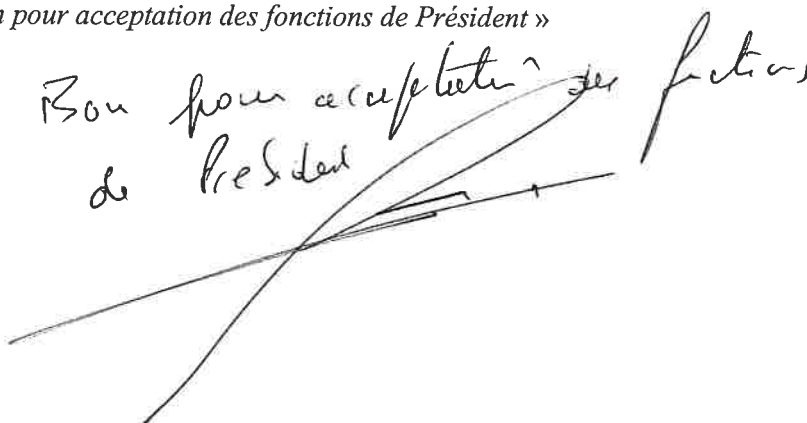 n pour acceptation des fonctions de Président »
Bon pour acceptation des fonctions
de President